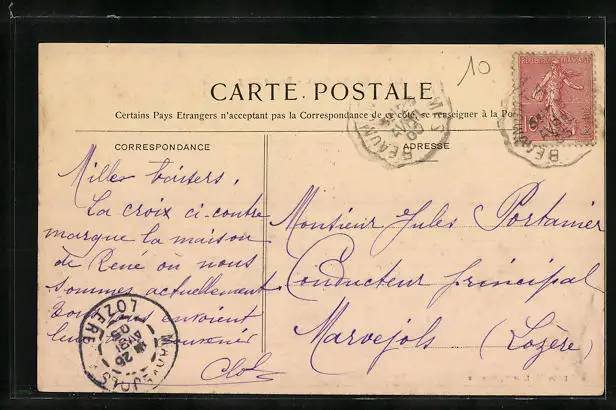 10
CARTE POSTALE
Certains Pays Etrangers n'acceptant pas la Correspondance de ce côté, se renseigner à la Pos
CORRESPONDANCE
ADRESSE
Milles baisers.
La croix ci-contre
marque la maison
de René où nous
sommes actuellement
Tous vous envoient
leur souvenir
Monsieur Jules Portanier
Conducteur principal
Marvejols (Lozère)
MARVEJOLS
LOZERE
26
05
REPUBLIQUE FRANÇAISE